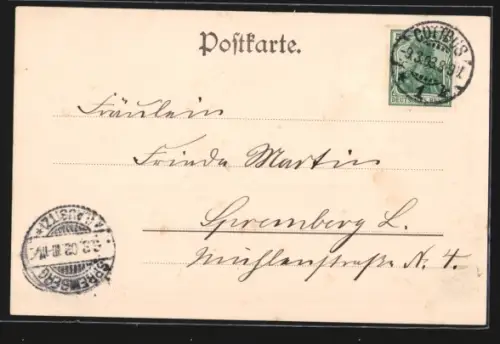 Postkarte.
COTTBUS
Fräulein
Frieda Martin
Spremberg L.
Mühlenstraße N. 4.
SPREMBERG
(LAUSITZ)